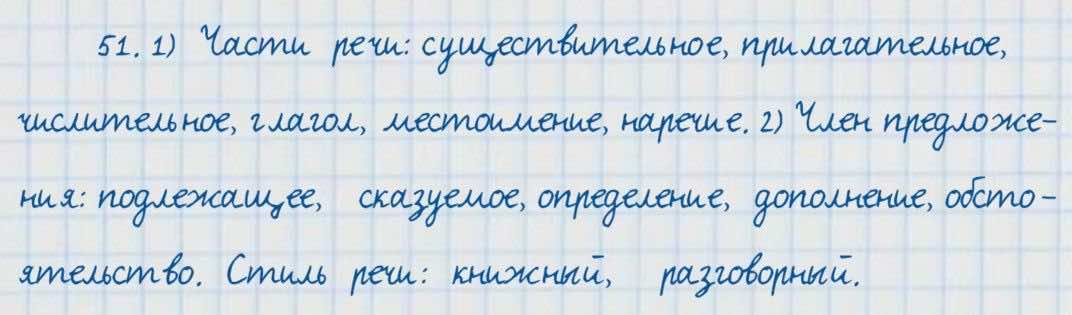 51. 1) Части речи: существительное, прилагательное,
числительное, глагол, местоимение, наречие. 2) Член предложе-
ния: подлежащее, сказуемое, определение, дополнение, обсто-
ятельство. Стиль речи: книжный, разговорный.